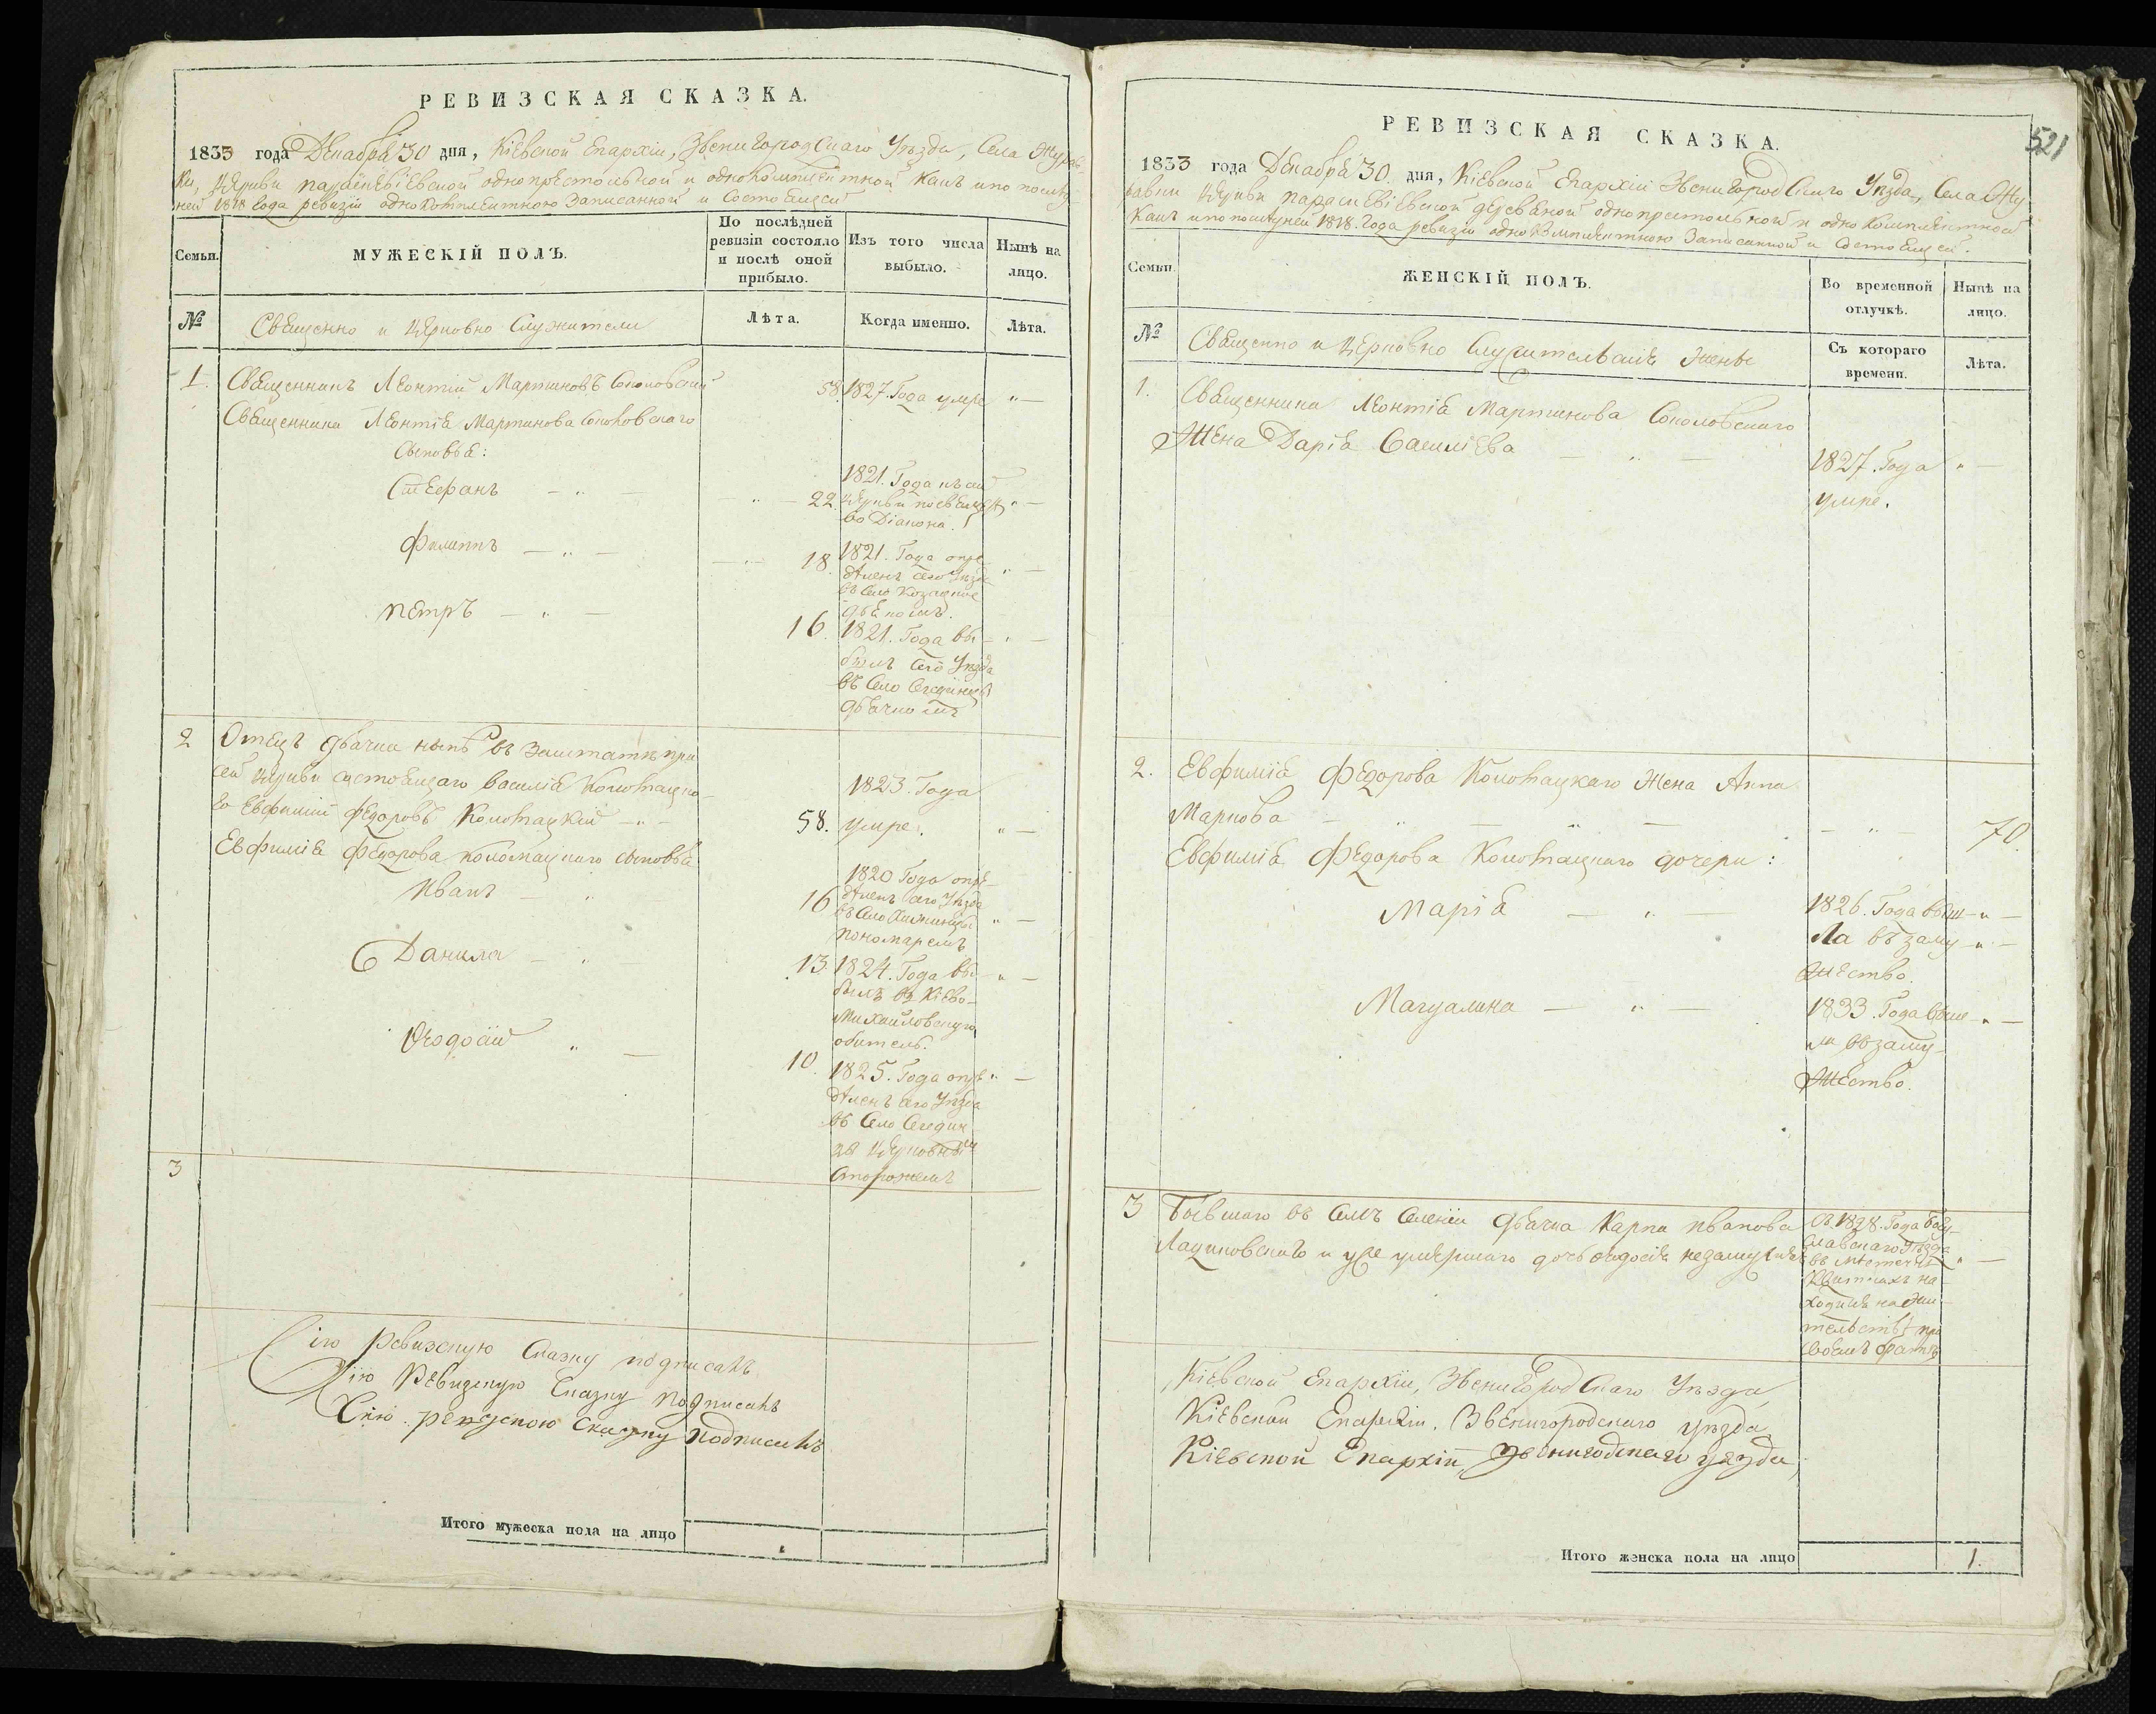 РЕВИЗСКАЯ СКАЗКА.
1833 года Декабря 30 дня, Кіевской Епархіи, Звенигородскаго Уѣзда, Села Журав-
ки, Церкви параскевіевской однопрестольной и однокомплектной какъ и по послѣд-
ней 1818 года ревизіи однокомплектною Записанной и Состоящей
Семьи.
МУЖЕСКІЙ ПОЛЪ.
По послѣдней
ревизіи состояло
и послѣ оной
прибыло.
Изъ того числа
выбыло.
Нынѣ на
лицо.
№
Священно и Церковно Служители
Лѣта.
Когда именно.
Лѣта.
1. Священникъ Леонтій Мартиновъ Соколовскій 58. 1827. Года умре „ —
Священника Леонтія Мартинова Соколовскаго
Сыновья:
Стефанъ — „ — „ — 22.
1821. Года къ сей
церкви посвященъ „ —
во Діакона.
Филиппъ — „ — — „ — 18.
1821. Года опре-
дѣленъ сего Уѣзда „ —
въ Село Козацкое
дьякомъ.
Петръ — „ — 16.
1821. Года вы- — „ —
былъ сего Уѣзда
въ Село
дьячкомъ
2 Отецъ дьячка нынѣ въ Заштатѣ при
сей церкви состоящаго Василія Коломацка-
го Евфимій Федоровъ Коломацкій — „ — 58.
1823. Года
умре. „ —
Евфимія Федорова Коломацкаго сыновья
Иванъ — „ 16
1820 Года опре-
дѣленъ сего Уѣзда
въ Село „ —
пономаремъ
Данила — „ 13.
1824. Года вы- „ —
былъ въ Кіево-
Михайловскую
обитель.
Феодосій „ — 10.
1825. Года опре- „ —
дѣленъ сего Уѣзда
въ Село
церковнымъ
сторожемъ
3
Сію Ревизскую Сказку подписалъ
Сію Ревизскую Сказку подписалъ
Сию ревизскою сказку подписалъ
Итого мужеска пола на лицо
521
РЕВИЗСКАЯ СКАЗКА.
1833 года Декабря 30. дня, Кіевской Епархіи Звенигородскаго Уѣзда, Села Жу-
равки Церкви Параскевіевской деревяной однопрестольной и однокомплектной
Какъ и по послѣдней 1818. Года ревизіи однокомплектною Записанной и Состоящей.
Семьи.
ЖЕНСКІЙ ПОЛЪ.
Во временной
отлучкѣ.
Нынѣ на
лицо.
№
Священно и Церковно Служительскіе Жены
Съ котораго
времени.
Лѣта.
1. Священника Леонтія Мартинова Соколовскаго
Жена Дарія Василіева — „ —
1827. Года „ —
умре.
2. Евфимія Федорова Коломацкаго Жена Анна
Маркова — „ — „ — — „ 70.
Евфимія Федорова Коломацкаго дочери:
Марія — „ —
1826. Года выш- — „ —
ла въ заму- — „ —
жество.
Магдалина — „ —
1833. Года выш- — „ —
ла въ заму-
жество.
3 Бывшаго въ Семъ Селеніи дьячка Карпа Иванова
и уже умершаго дочь Феодосія незамужняя
Съ 1828. Года Богу-
славскаго Уѣзда
въ Мѣстечкѣ „ —
на-
ходится на жи-
тельствѣ при
своемъ братѣ
Кіевской Епархіи, Звенигородскаго Уѣзда,
Кіевской Епархіи. Звенигородскаго уѣзда,
Кіевской Епархіи Звенигодскаго уѣзда,
Итого женска пола на лицо 1.